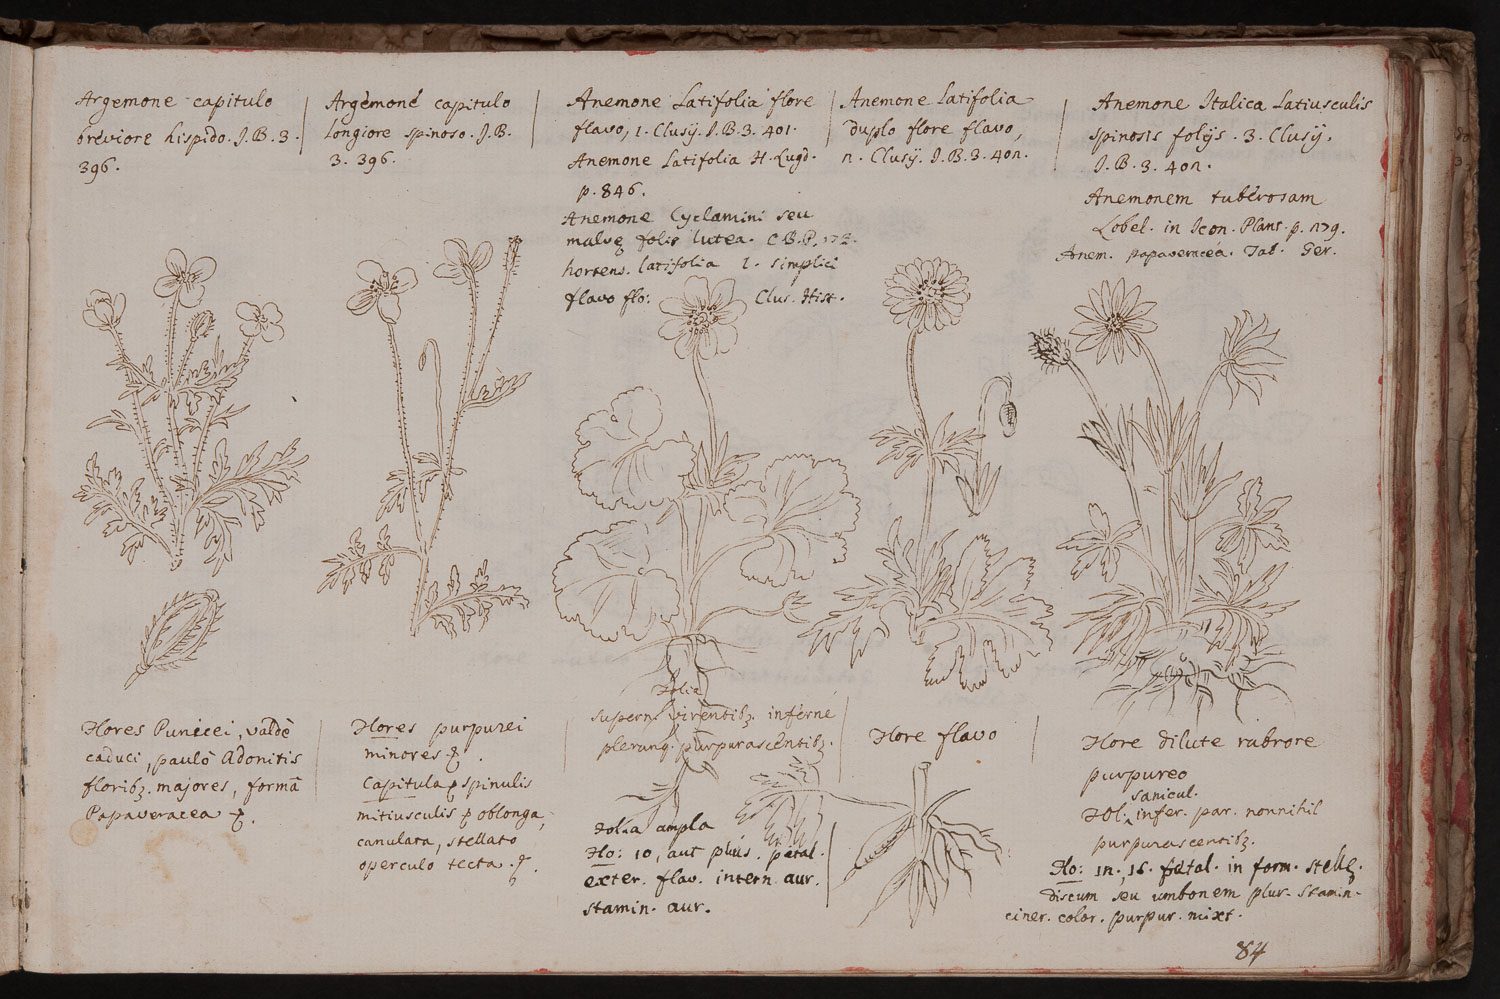 Argemone capitulo
breviore hispido. J. B. 3.
396.
Argemone capitulo
longiore spinoso. J. B.
3. 396.
Anemone Latifolia flore
flavo, 1. Clusij. J. B. 3. 401.
Anemone Latifolia H. Lugd.
p. 846.
Anemone Cyclamini seu
malvę folio lutea. C. B. P. 173.
hortens. latifolia 1. simplici
flavo flo: Clus. Hist.
Anemone Latifolia
duplo flore flavo,
2. Clusij. J. B. 3. 402.
Anemone Italica Latiusculis
spinosis folijs. 3. Clusij.
J. B. 3. 402.
Anemonem tuberosam
Lobel. in Icon. Plant. p. 279.
Anem. papaveracea. Tab. Ger.
Flores Punicei, valdè
caduci, paulò Adonitis
floribz. majores, formâ
Papaveracea
Flores purpurei
minores
Capitula spinulis
mitiusculis oblonga,
canulata, stellato
operculo tecta.
Folia
superne virentibz. inferne
plerunq. purpurascentibz.
Folia ampla
Flo: 10, aut plus. petal.
exter. flav. intern. aur.
stamin. aur.
Flore flavo
Flore dilute rubrore
purpureo
sanicul.
Fol: infer. par. nonnihil
purpurascentibz.
Flo: 12, 15. petal. in form. stellę.
discum seu umbonem plur. stamin.
ciner. color. purpur. mixt.
84